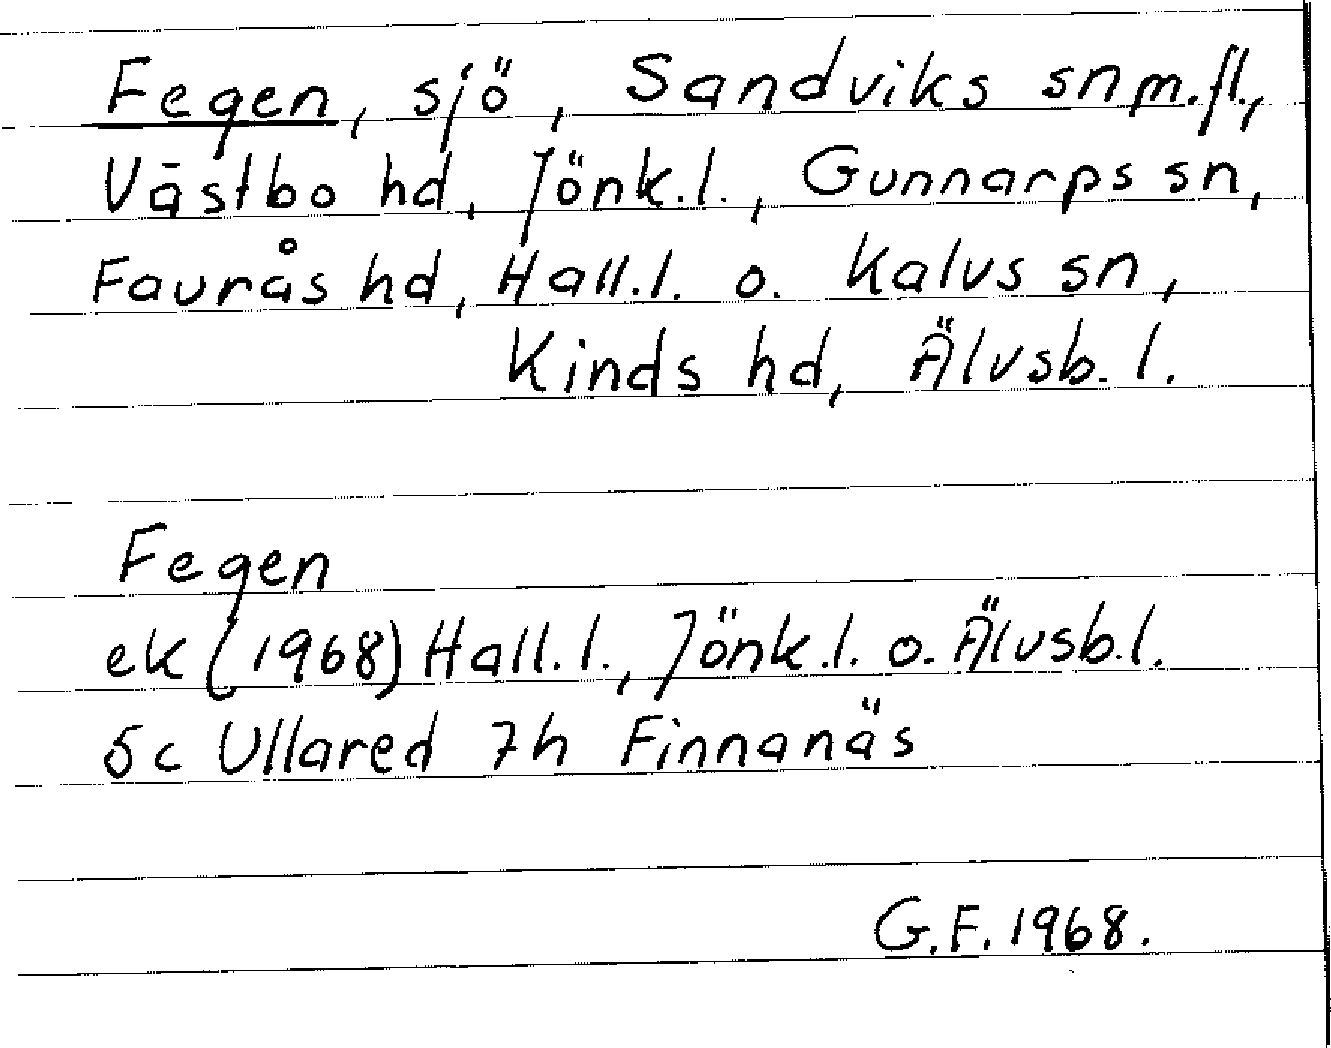 Fegen, sjö, Sandviks sn m.fl.,
Västbo hd, Jönk.l., Gunnarps sn,
Faurås hd, Hall.l. o. Kalvs sn,
Kinds hd, Älvsb.l.
Fegen
ek (1968) Hall.l., Jönk.l. o. Älvsb.l.
5c Ullared 7h Finnanäs
G.F. 1968.